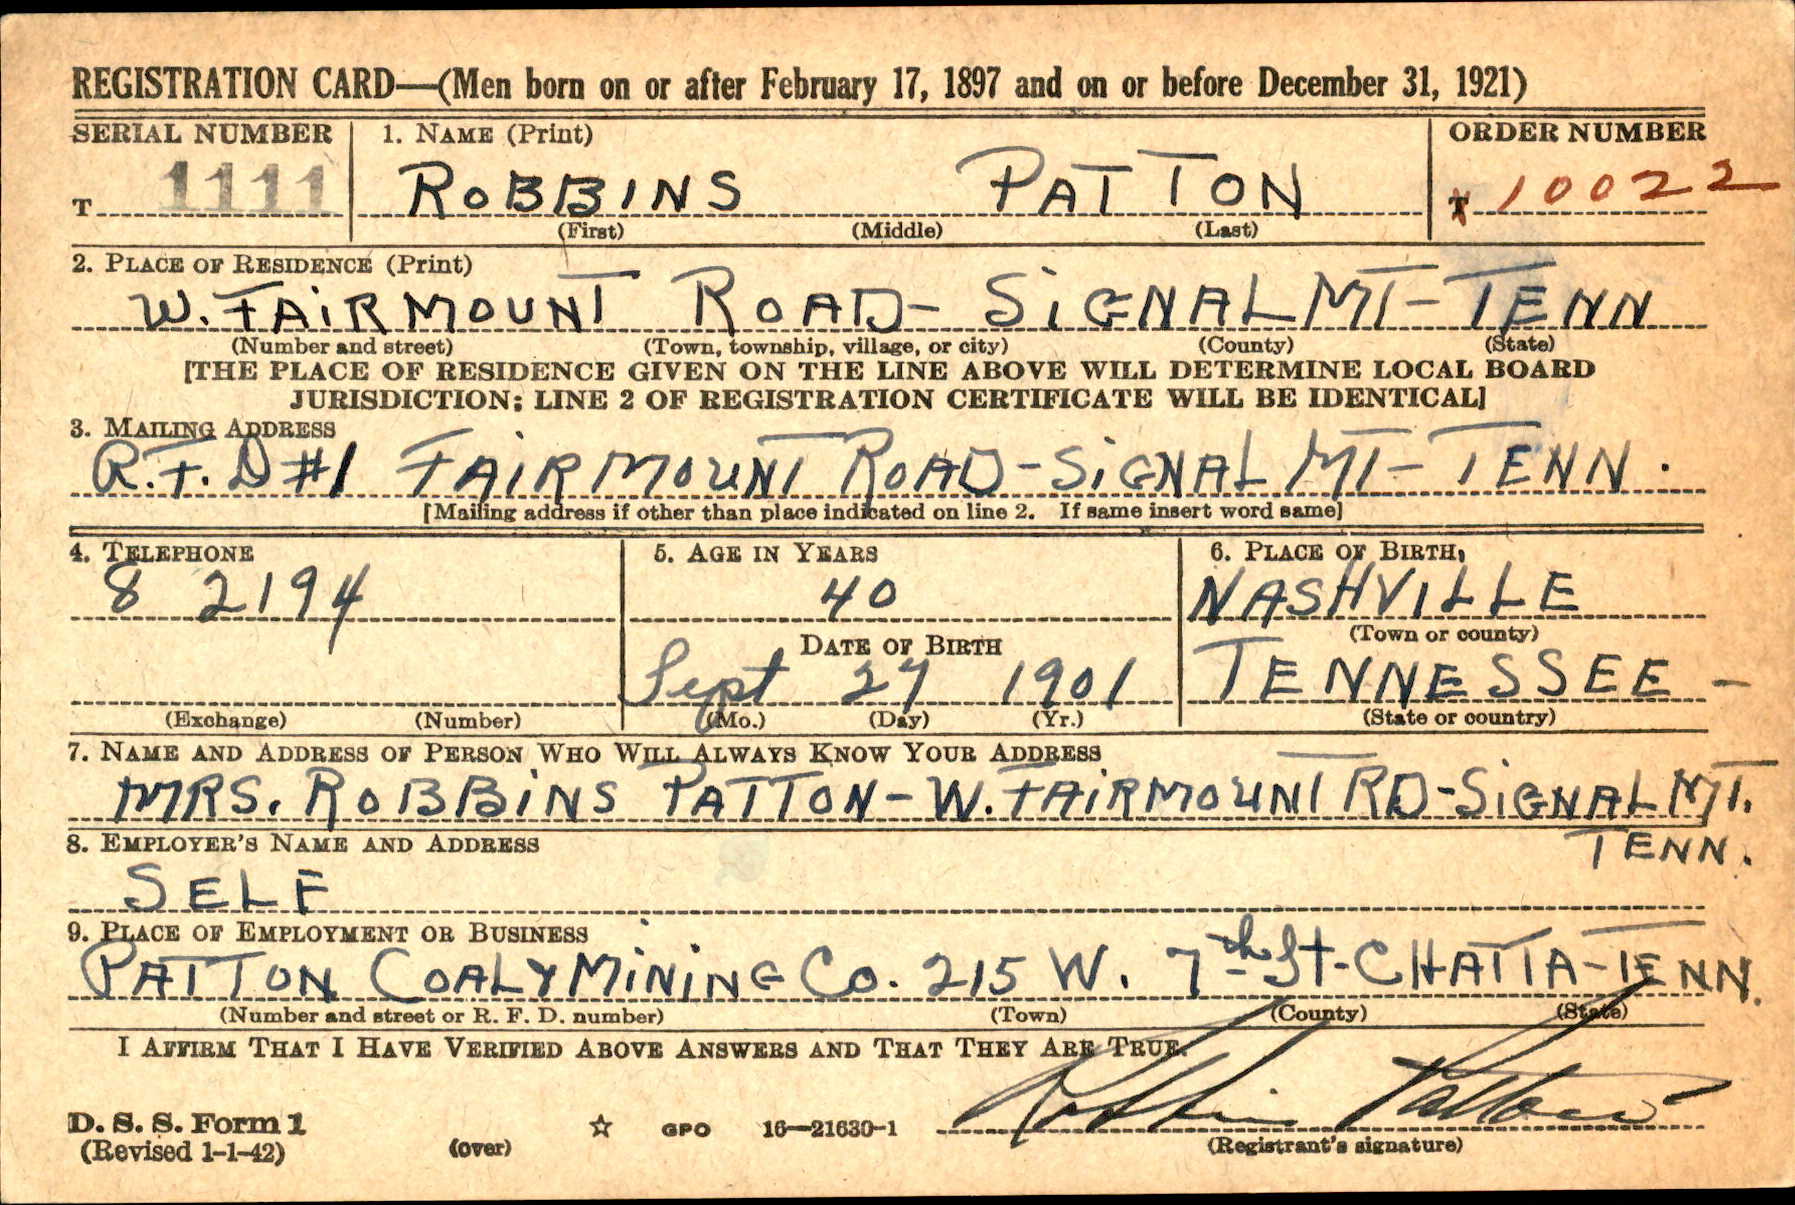 REGISTRATION CARD—(Men born on or after February 17, 1897 and on or before December 31, 1921)
SERIAL NUMBER 1. NAME (Print) ORDER NUMBER
T 1111 ROBBINS PATTON T 10022
(First) (Middle) (Last)
2. PLACE OF RESIDENCE (Print)
W. FAIRMOUNT ROAD- SIGNAL MT- TENN
(Number and street) (Town, township, village, or city) (County) (State)
[THE PLACE OF RESIDENCE GIVEN ON THE LINE ABOVE WILL DETERMINE LOCAL BOARD
JURISDICTION; LINE 2 OF REGISTRATION CERTIFICATE WILL BE IDENTICAL]
3. MAILING ADDRESS
R.F.D #1 FAIRMOUNT ROAD-SIGNAL MT- TENN.
[Mailing address if other than place indicated on line 2. If same insert word same]
4. TELEPHONE 5. AGE IN YEARS 6. PLACE OF BIRTH
8 2194 40 NASHVILLE
DATE OF BIRTH (Town or county)
Sept 27 1901 TENNESSEE-
(Exchange) (Number) (Mo.) (Day) (Yr.) (State or country)
7. NAME AND ADDRESS OF PERSON WHO WILL ALWAYS KNOW YOUR ADDRESS
MRS. ROBBINS PATTON-W. FAIRMOUNT RD-SIGNAL MT.
8. EMPLOYER'S NAME AND ADDRESS TENN.
SELF
9. PLACE OF EMPLOYMENT OR BUSINESS
PATTON COAL & MINING Co. 215 W. 7th St-CHATTA-TENN.
(Number and street or R. F. D. number) (Town) (County) (State)
I AFFIRM THAT I HAVE VERIFIED ABOVE ANSWERS AND THAT THEY ARE TRUE.
Robbins Patton
D. S. S. Form 1
(Revised 1-1-42) (over) ☆ GPO 16—21630-1 (Registrant's signature)